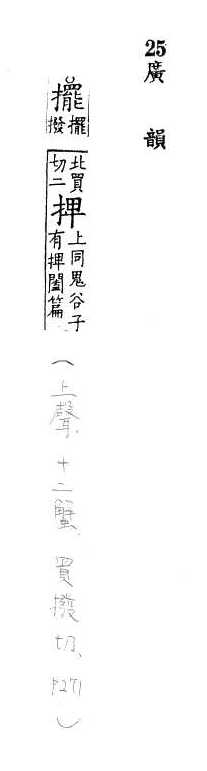 25 廣韻
擺擺撥北買切二捭上同鬼谷子有捭闔篇(上聲、十二蟹、買撥切、P271)